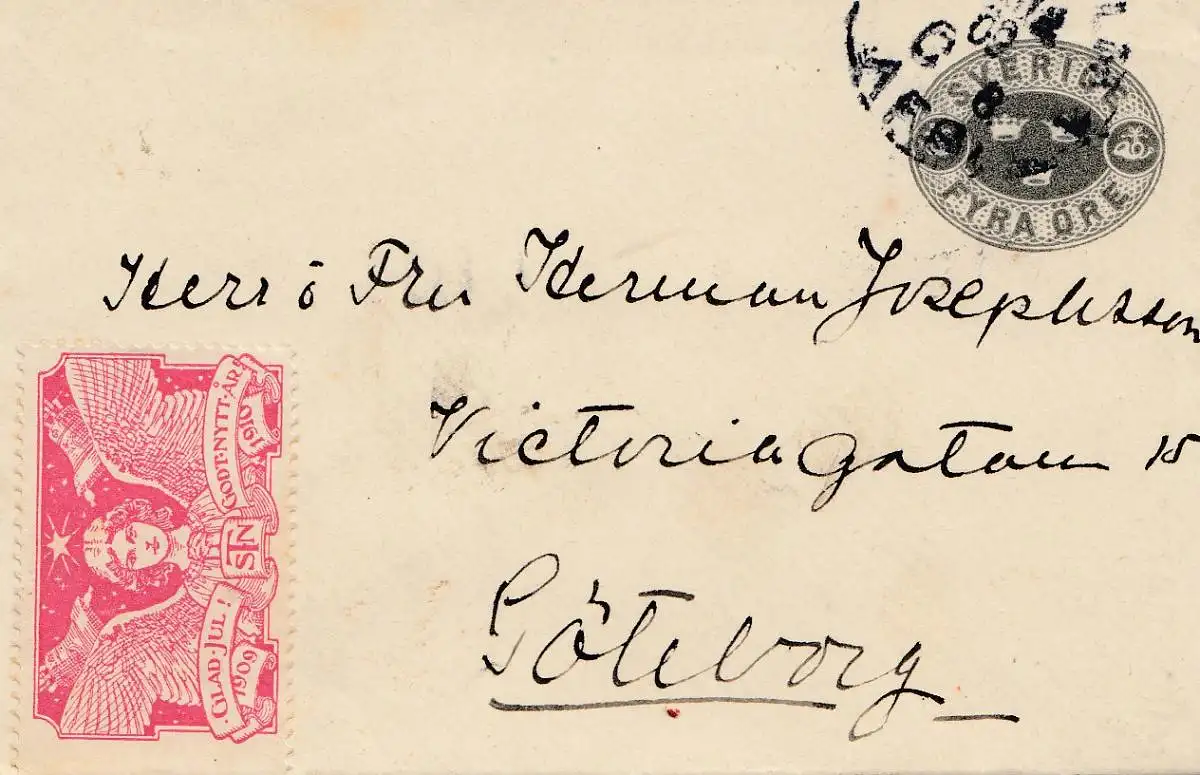 SVERIGE
FYRA ÖRE
Herr o Fru Herman Josephsson
Victoriagatan 15
Göteborg
GLAD·JUL!
1909
STN
GODT·NYTT·ÅR
1910